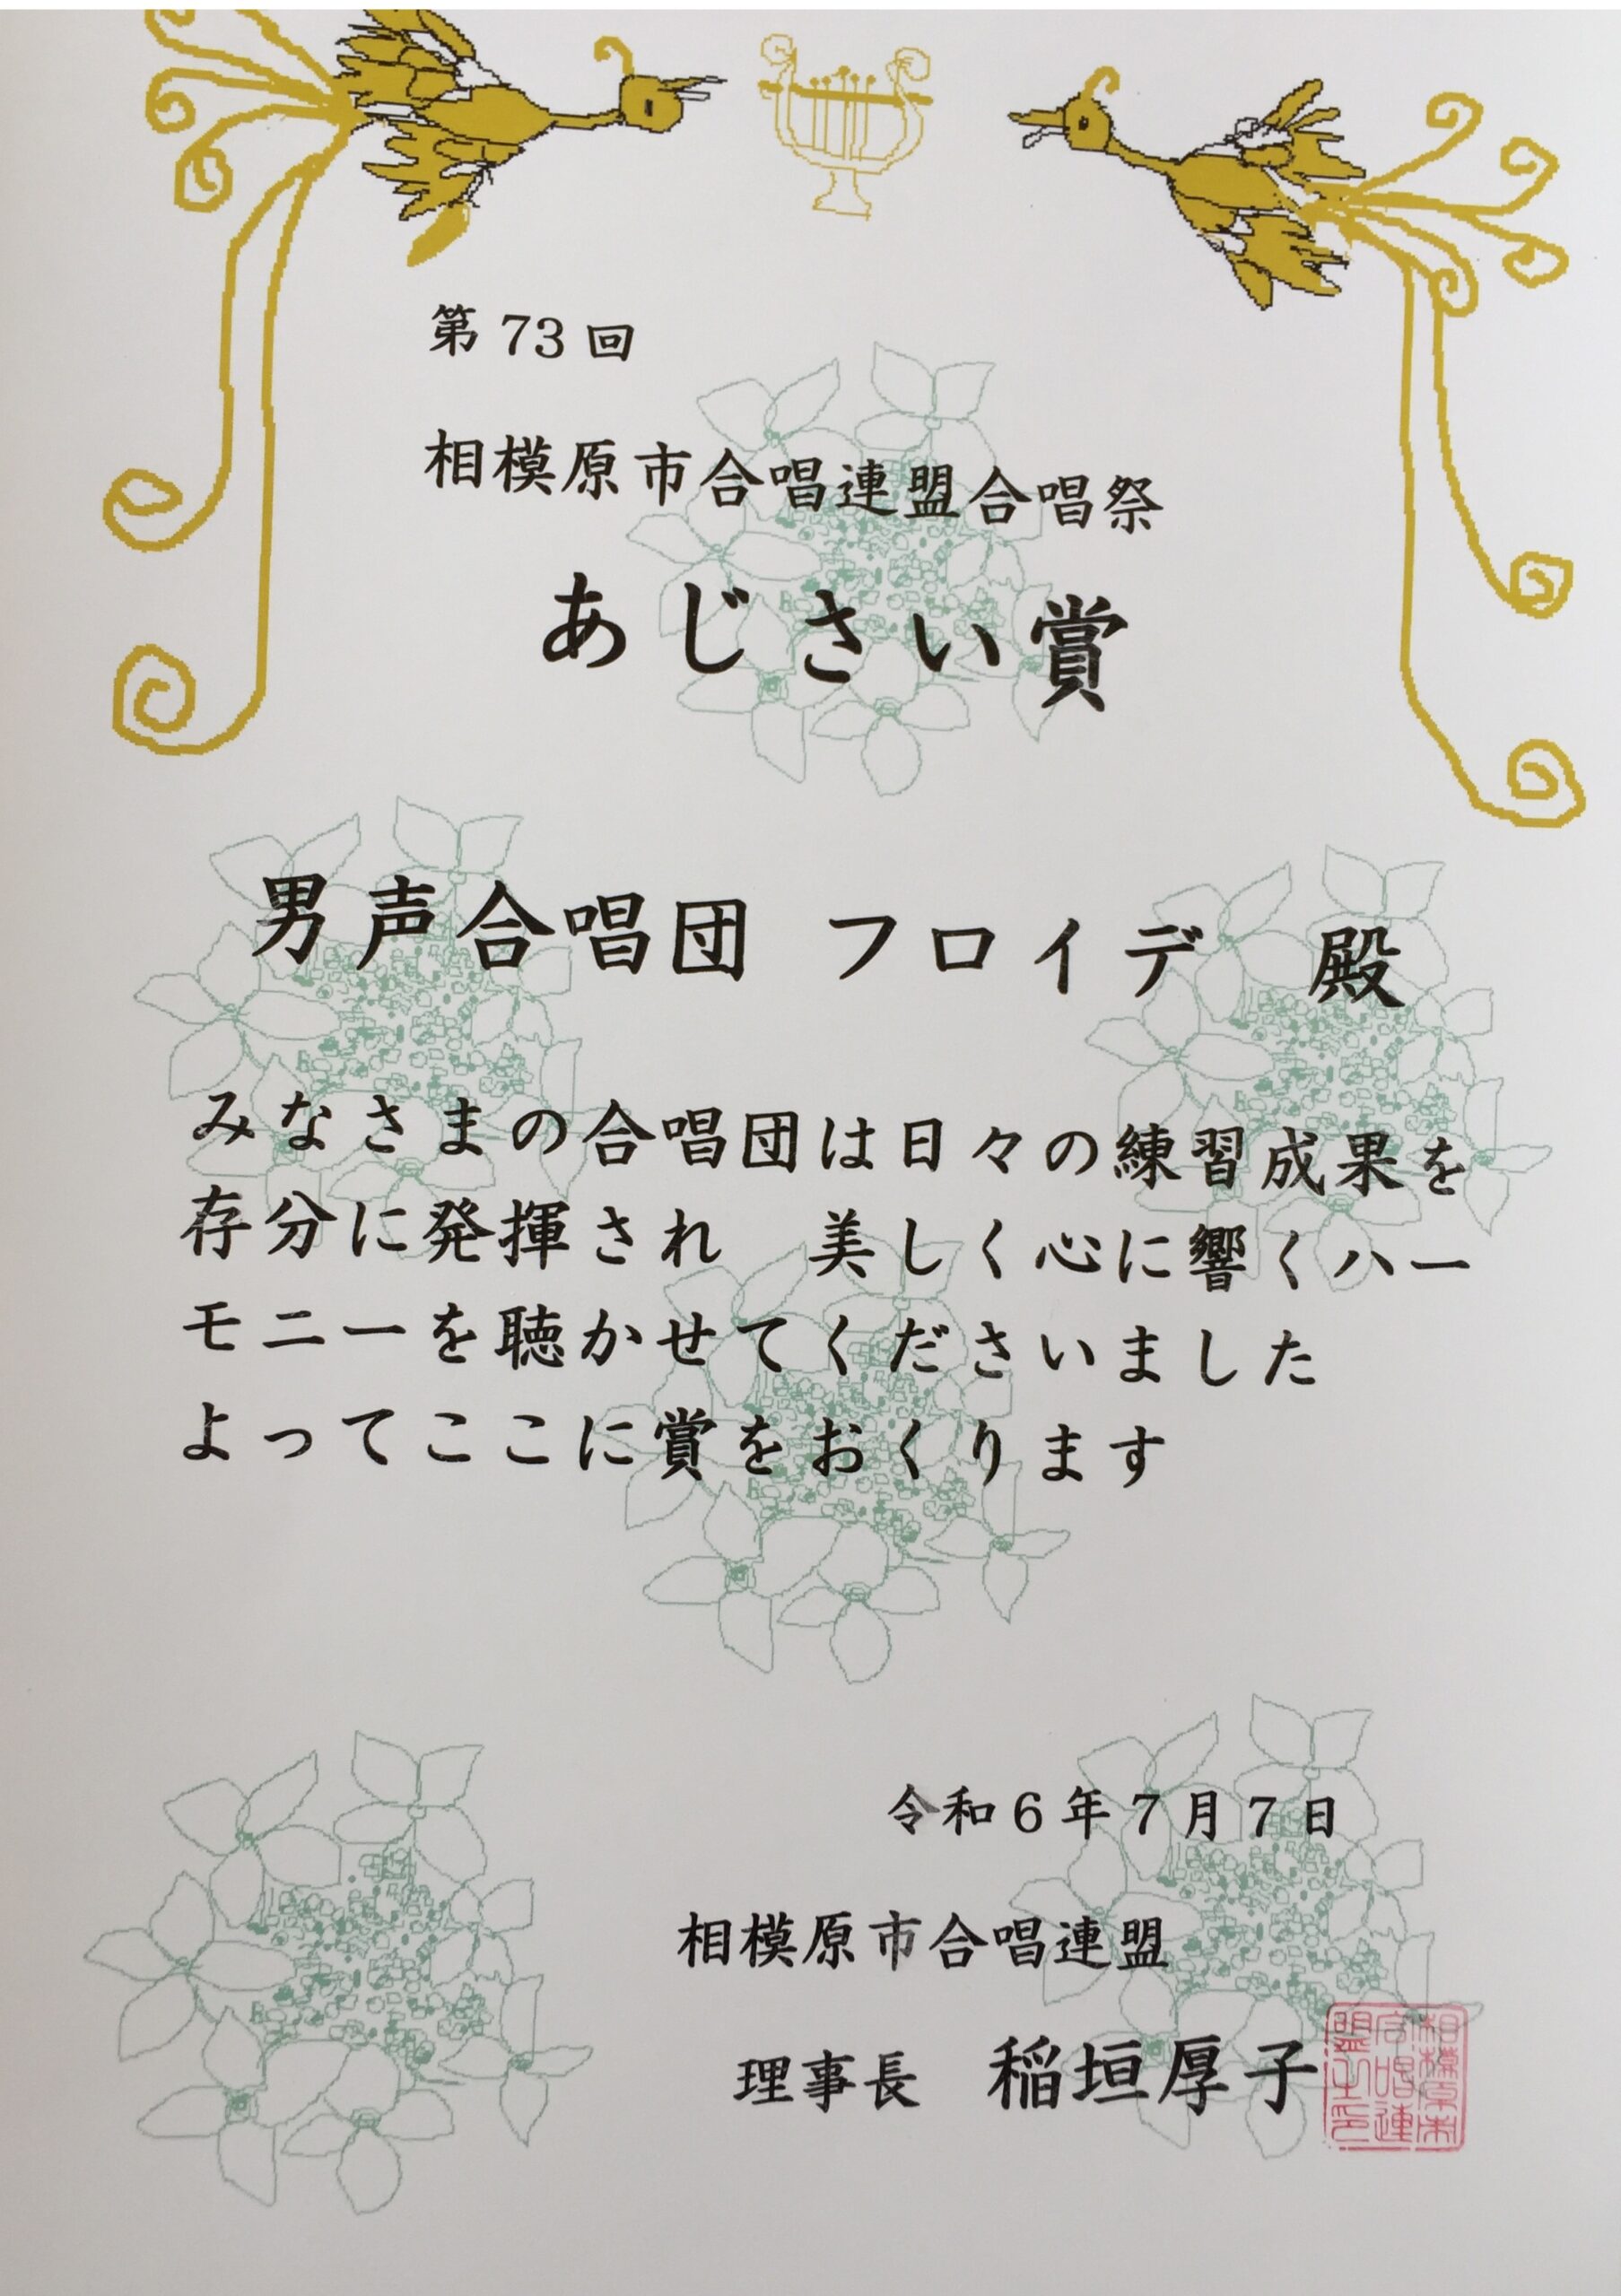 第73回
相模原市合唱連盟合唱祭
あじさい賞
男声合唱団 フロイデ 殿
みなさまの合唱団は日々の練習成果を
存分に発揮され 美しく心に響くハー
モニーを聴かせてくださいました
よってここに賞をおくります
令和6年7月7日
相模原市合唱連盟
理事長 稲垣厚子
相模原市
合唱連
盟之印